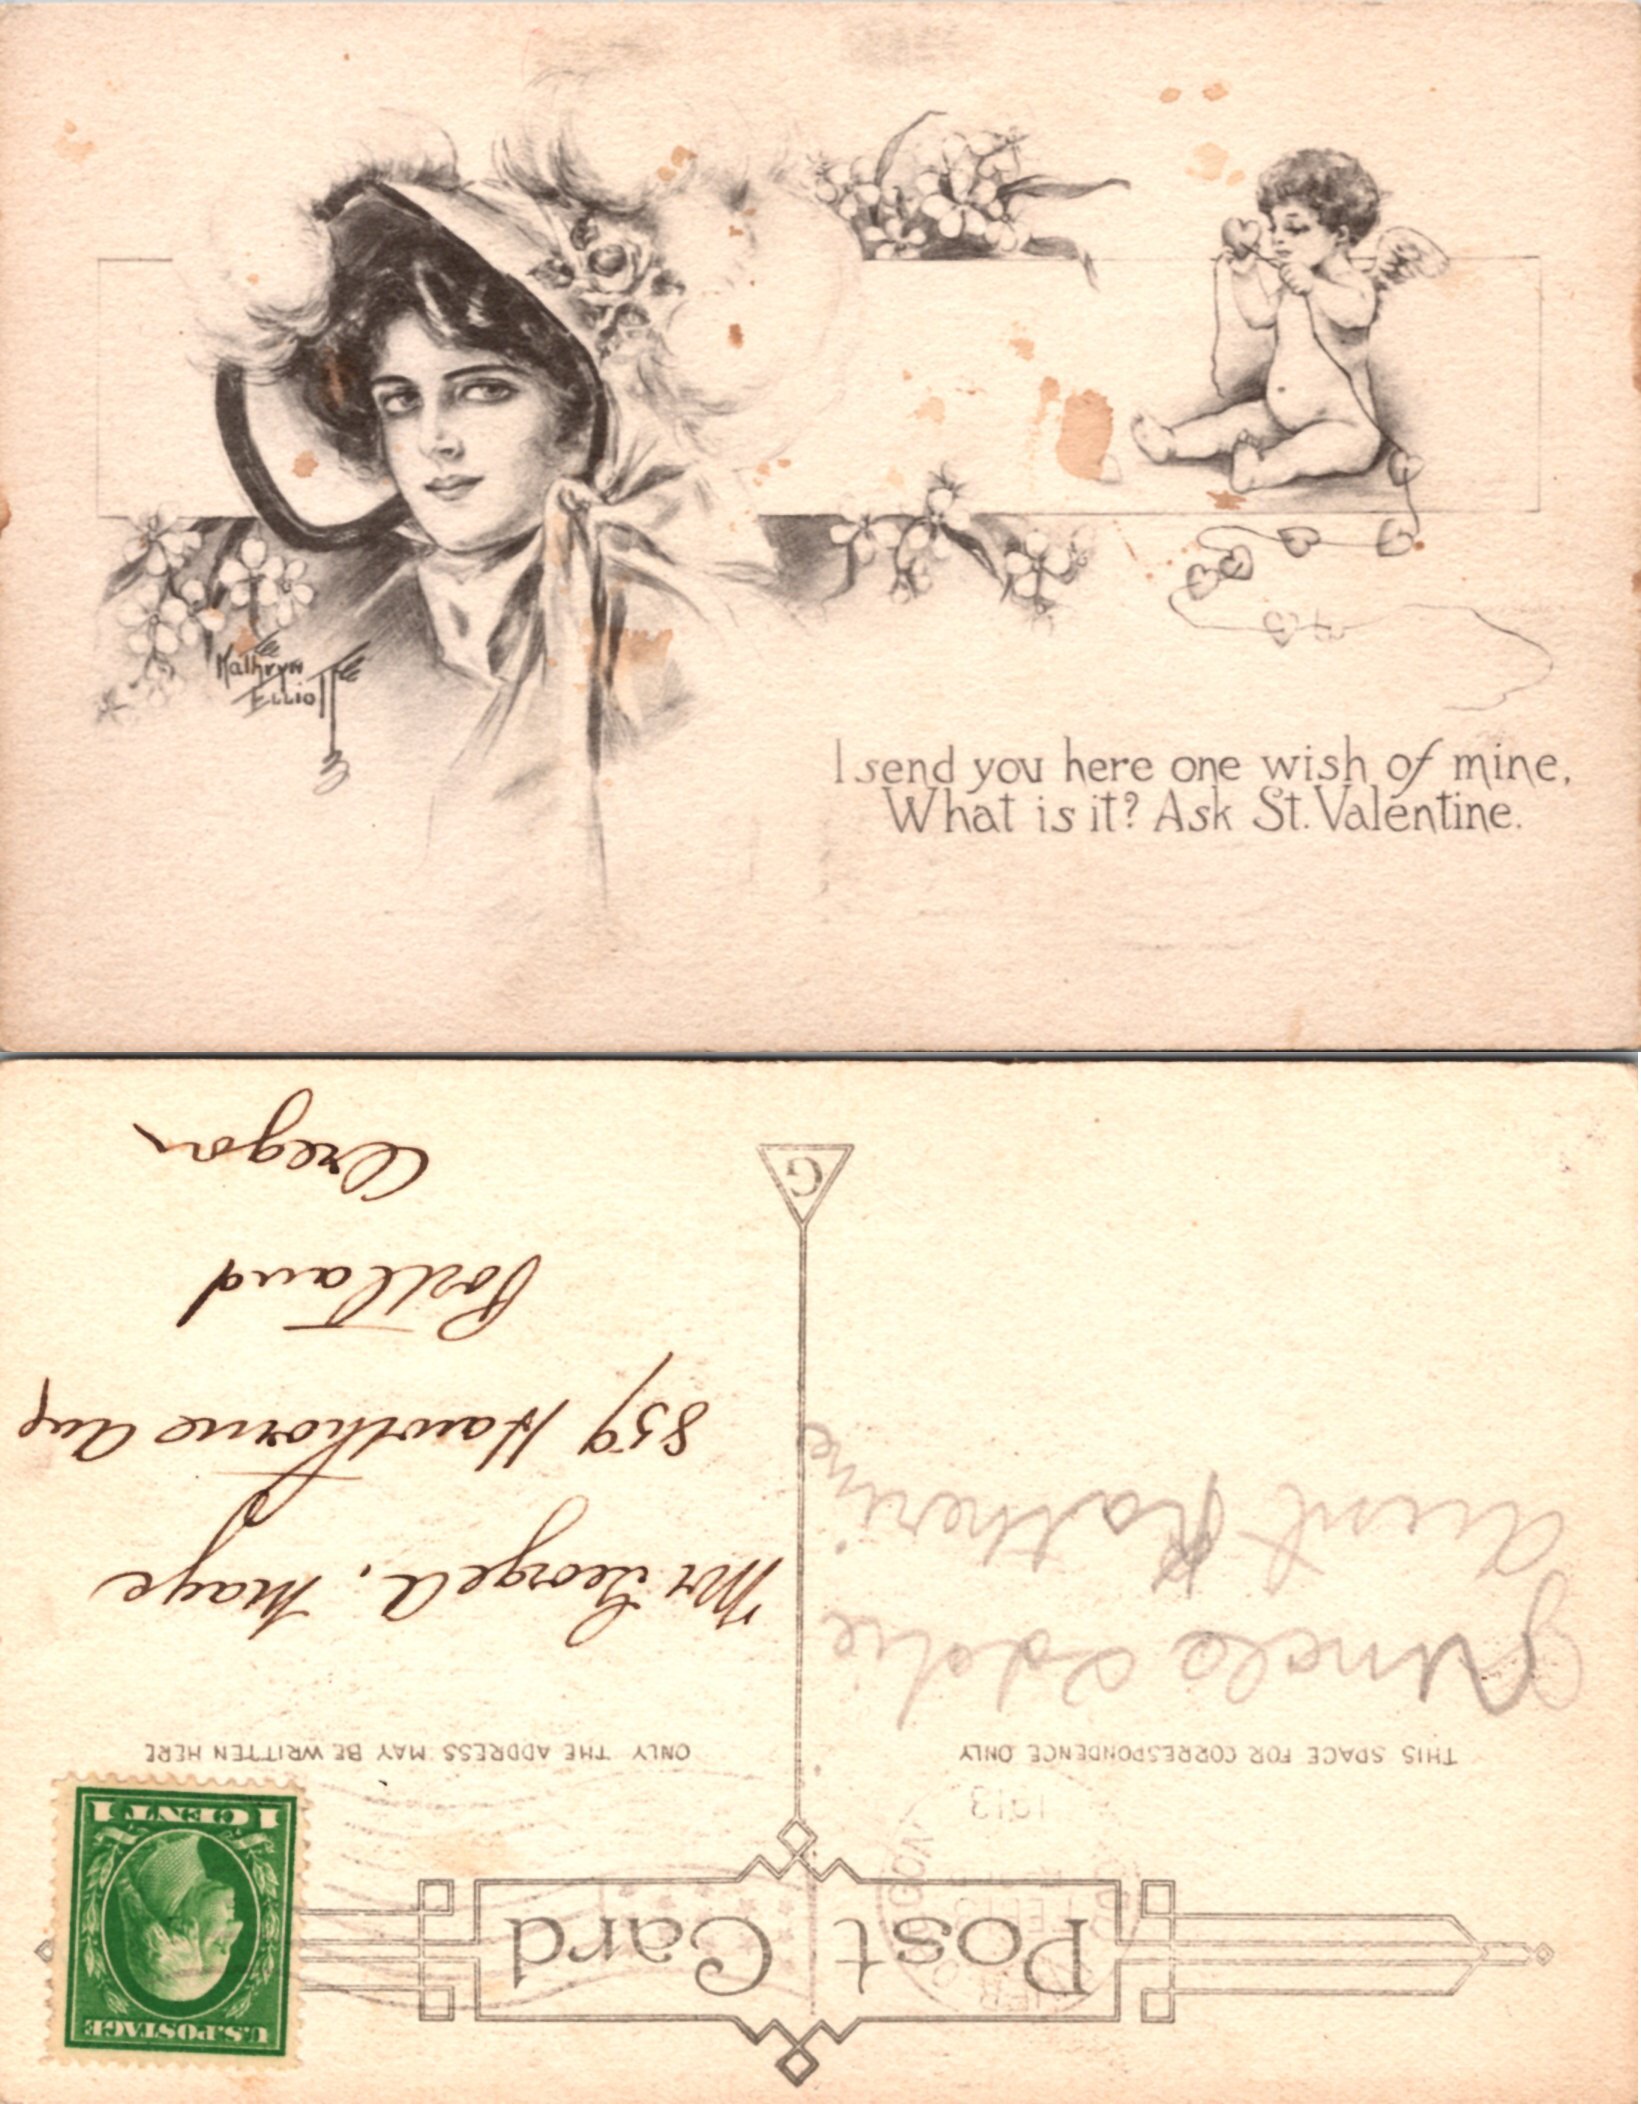 Kathryn
Elliott
I send you here one wish of mine,
What is it? Ask St. Valentine.
Post Card
1913
THIS SPACE FOR CORRESPONDENCE ONLY
Uncle Eddie
Aunt Katherine
G
U.S. POSTAGE
1 CENT 1
ONLY THE ADDRESS MAY BE WRITTEN HERE
Mr George A. Maye
859 Hawthorne Ave
Portland
Oregon